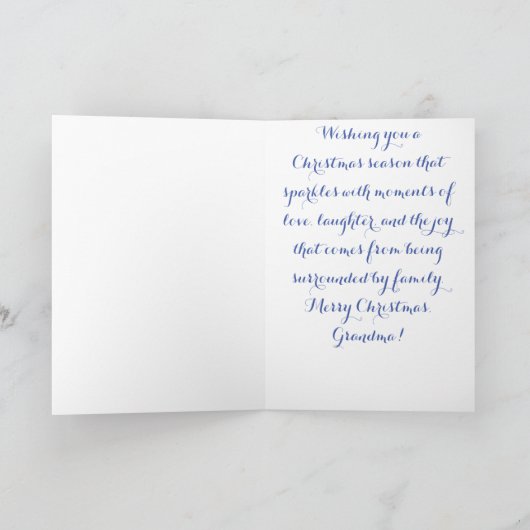 Wishing you a
Christmas season that
sparkles with moments of
love, laughter, and the joy
that comes from being
surrounded by family.
Merry Christmas,
Grandma!